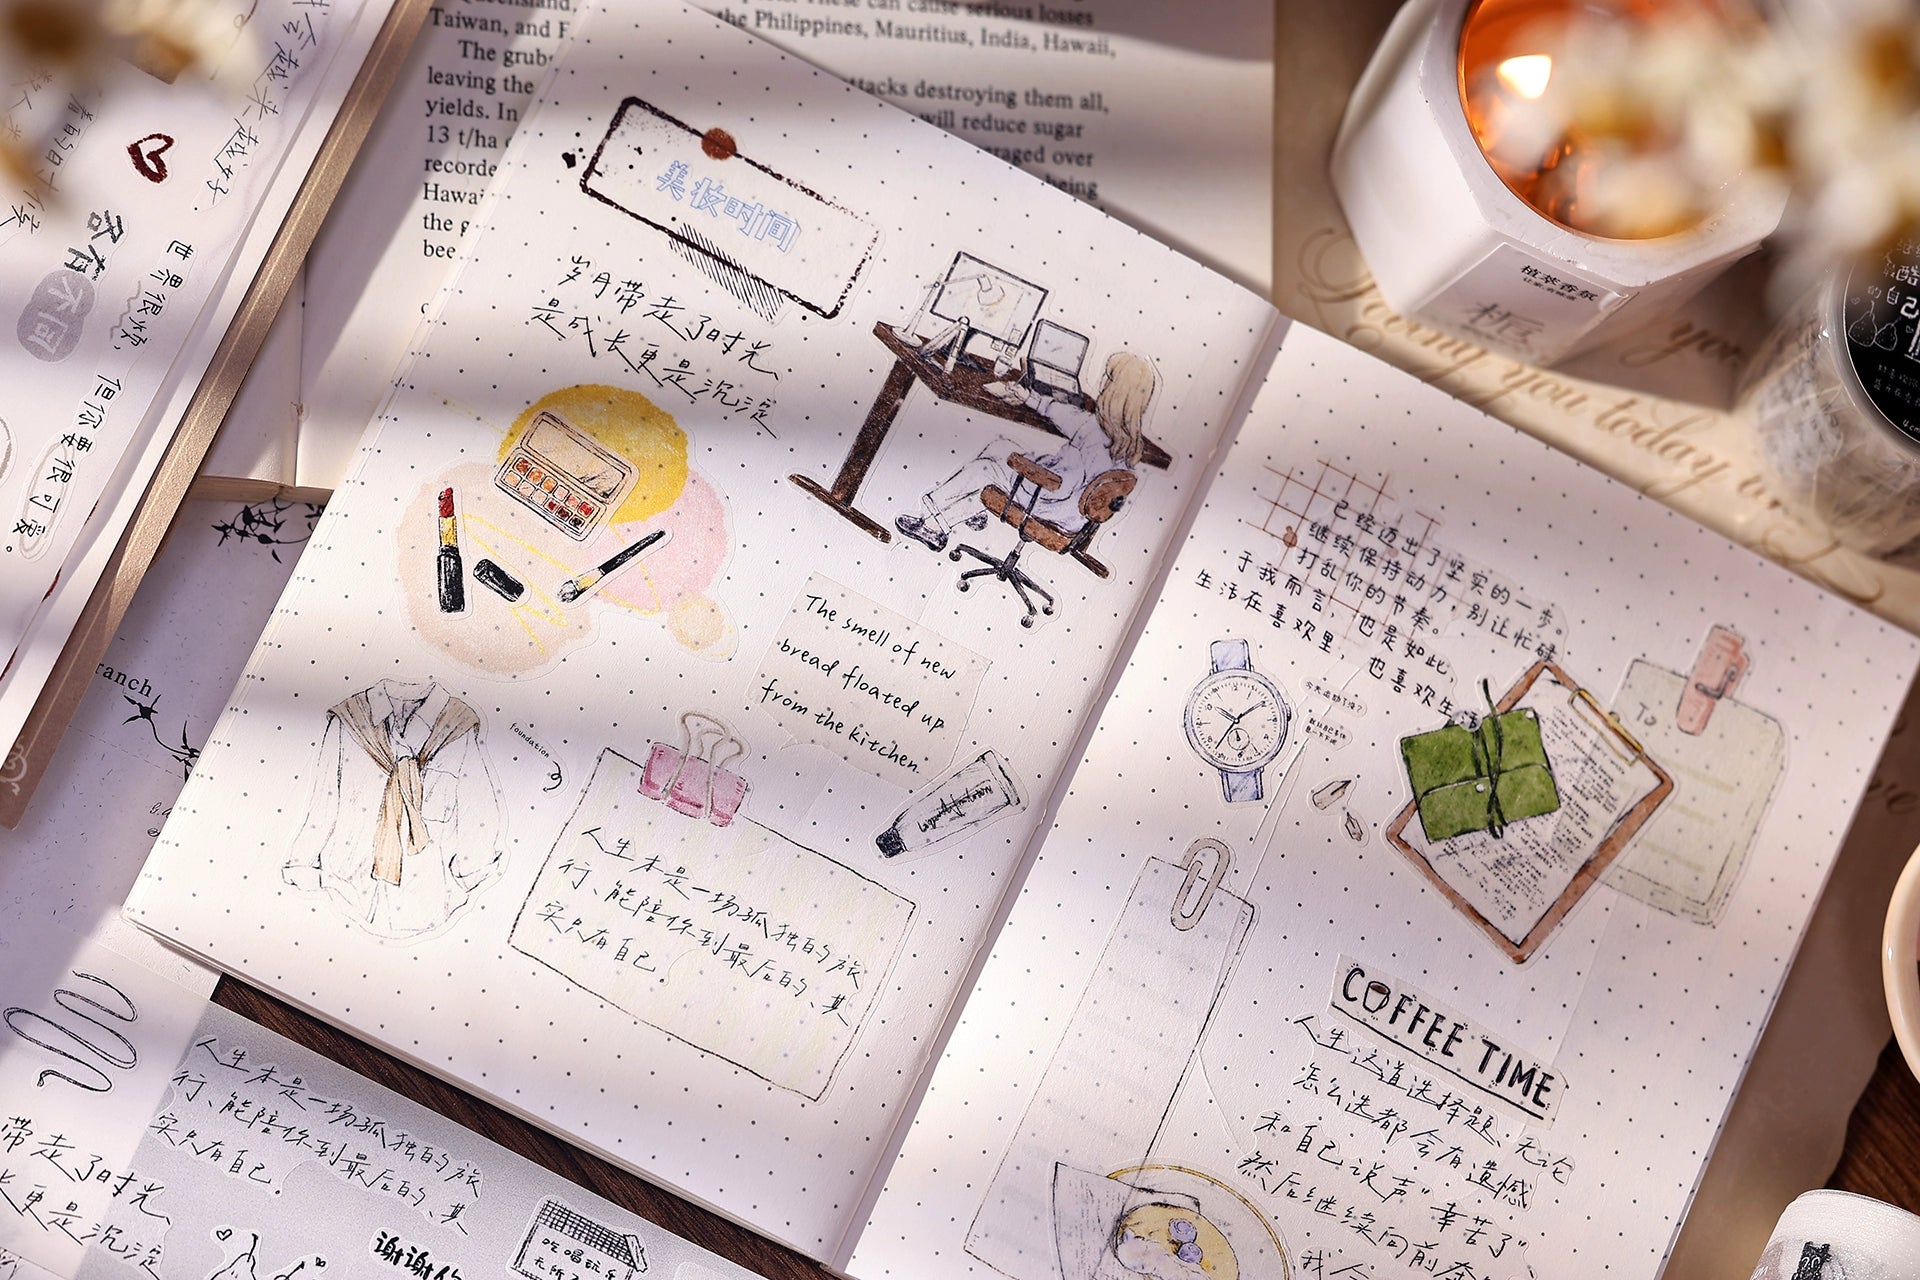 Queensland,
Taiwan, and F
The grub
leaving the
yields. In
13 t/ha
recorde
Hawai
the g
bee
These can cause serious losses
the Philippines, Mauritius, India, Hawaii,
attacks destroying them all,
will reduce sugar
raged over
being
美妆时间
岁月带走了时光、
是成长更是沉淀
The smell of new
bread floated up
from the kitchen.
foundation
人生本是一场孤独的旅
行、能陪你到最后的、其
实只有自己。
已经迈出了坚实的一步。
继续保持动力,别让忙碌
打乱你的节奏。
于我而言,也是如此,
生活在喜欢里,也喜欢生活
To
COFFEE TIME
人生这道选择题、无论
怎么选都会有遗憾
和自己说声"辛苦了"
然后继续向前奔
我会
世界很烦,
但你要很可爱。
各有
不同
ranch
人生本是一场孤独的旅
行、能陪你到最后的、其
实只有自己。
带走了时光、
长更是沉淀
谢谢你
吃喝玩乐
植萃香氛
you today